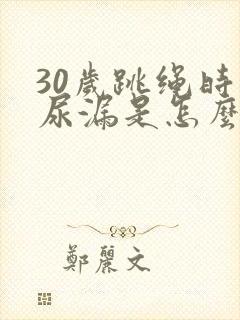 30歲跳绳時
尿漏是怎麼
鄭麗文